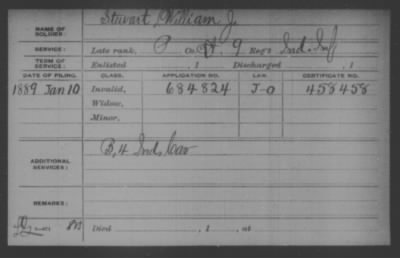 NAME OF SOLDIER: Stuart, William J.
SERVICE: Late rank, P Co. H, 9 Reg't Ind. Inf
TERM OF SERVICE: Enlisted , 1 Discharged , 1
DATE OF FILING. CLASS. APPLICATION NO. LAW. CERTIFICATE NO.
1889 Jan 10 Invalid, 684824 J-O 458458
Widow,
Minor,
ADDITIONAL SERVICES: B, 4 Ind. Cav
REMARKS:
Died , 1 , at